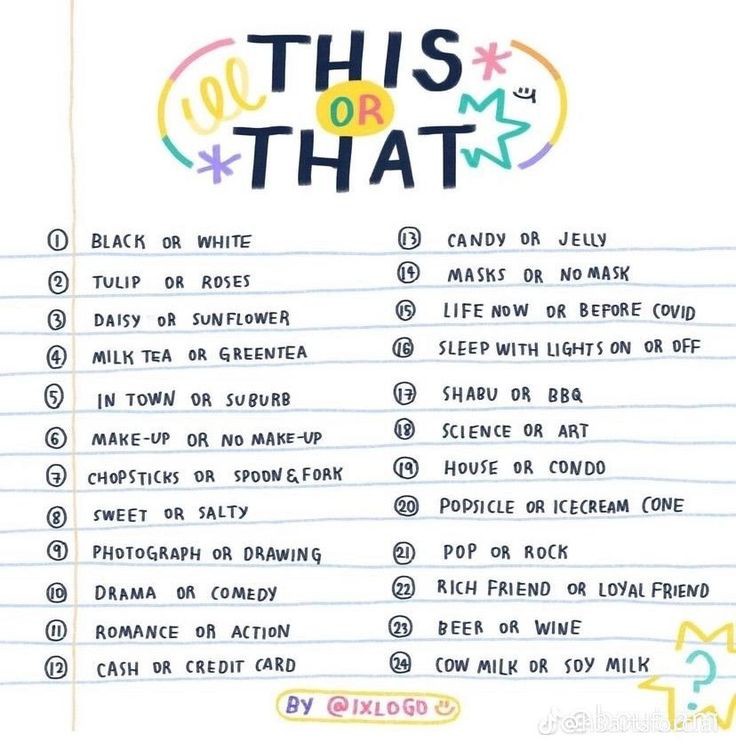 THIS
OR
THAT
1 BLACK OR WHITE
2 TULIP OR ROSES
3 DAISY OR SUNFLOWER
4 MILK TEA OR GREENTEA
5 IN TOWN OR SUBURB
6 MAKE-UP OR NO MAKE-UP
7 CHOPSTICKS OR SPOON & FORK
8 SWEET OR SALTY
9 PHOTOGRAPH OR DRAWING
10 DRAMA OR COMEDY
11 ROMANCE OR ACTION
12 CASH OR CREDIT CARD
13 CANDY OR JELLY
14 MASKS OR NO MASK
15 LIFE NOW OR BEFORE COVID
16 SLEEP WITH LIGHTS ON OR OFF
17 SHABU OR BBQ
18 SCIENCE OR ART
19 HOUSE OR CONDO
20 POPSICLE OR ICECREAM CONE
21 POP OR ROCK
22 RICH FRIEND OR LOYAL FRIEND
23 BEER OR WINE
24 COW MILK OR SOY MILK
?
BY @IXLOGO